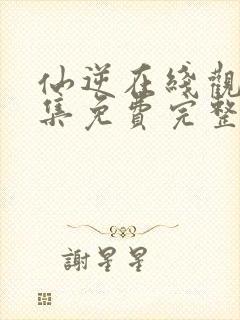 仙逆在綫觀
集免費完整
謝星星